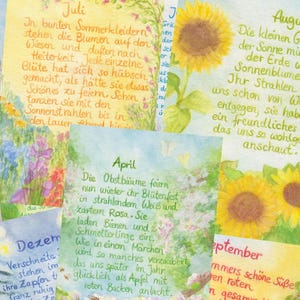 Juli
In bunten Sommerkleidern
stehen die Blumen auf den
Wiesen und duften nach
Heiterkeit. Jede einzelne
Blüte hat sich so hübsch
gemacht, als hätte sie etwas
Schönes zu feiern. Schon
tanzen sie mit den
Sonnenstrahlen bis in
den lauen Abend
Augu
Die kleinen G
der Sonne mi
der Erde
Sonnenblum
Ihr Strahlen
uns schon von
entgegen, sie habe
ein freundliches
das uns so wohlw
anschaut.
April
Die Obstbäume feiern
nun wieder ihr Blütenfest
in strahlendem Weiß und
zartem Rosa. Sie
laden Bienen und
Schmetterlinge ein.
Wie in einem Märchen
wird so manches verzaubert,
das uns später im Jahr
glücklich als Apfel mit
roten Backen anlacht.
Dezem
Verschneite
stehen im
ihre Zapfen
Franz ruhig
eptember
mmers schöne Süße
en roten
n gesamm